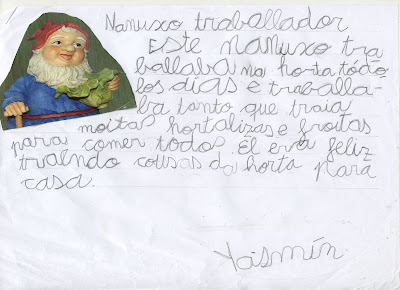 Nanuxo traballador
Este nanuxo tra
ballaba na horta tódo
los dias e traballa-
ba tanto que traia
moitas hortalizas e froitas
para comer todos. El era feliz
traendo cousas da horta para
casa.
Yasmín